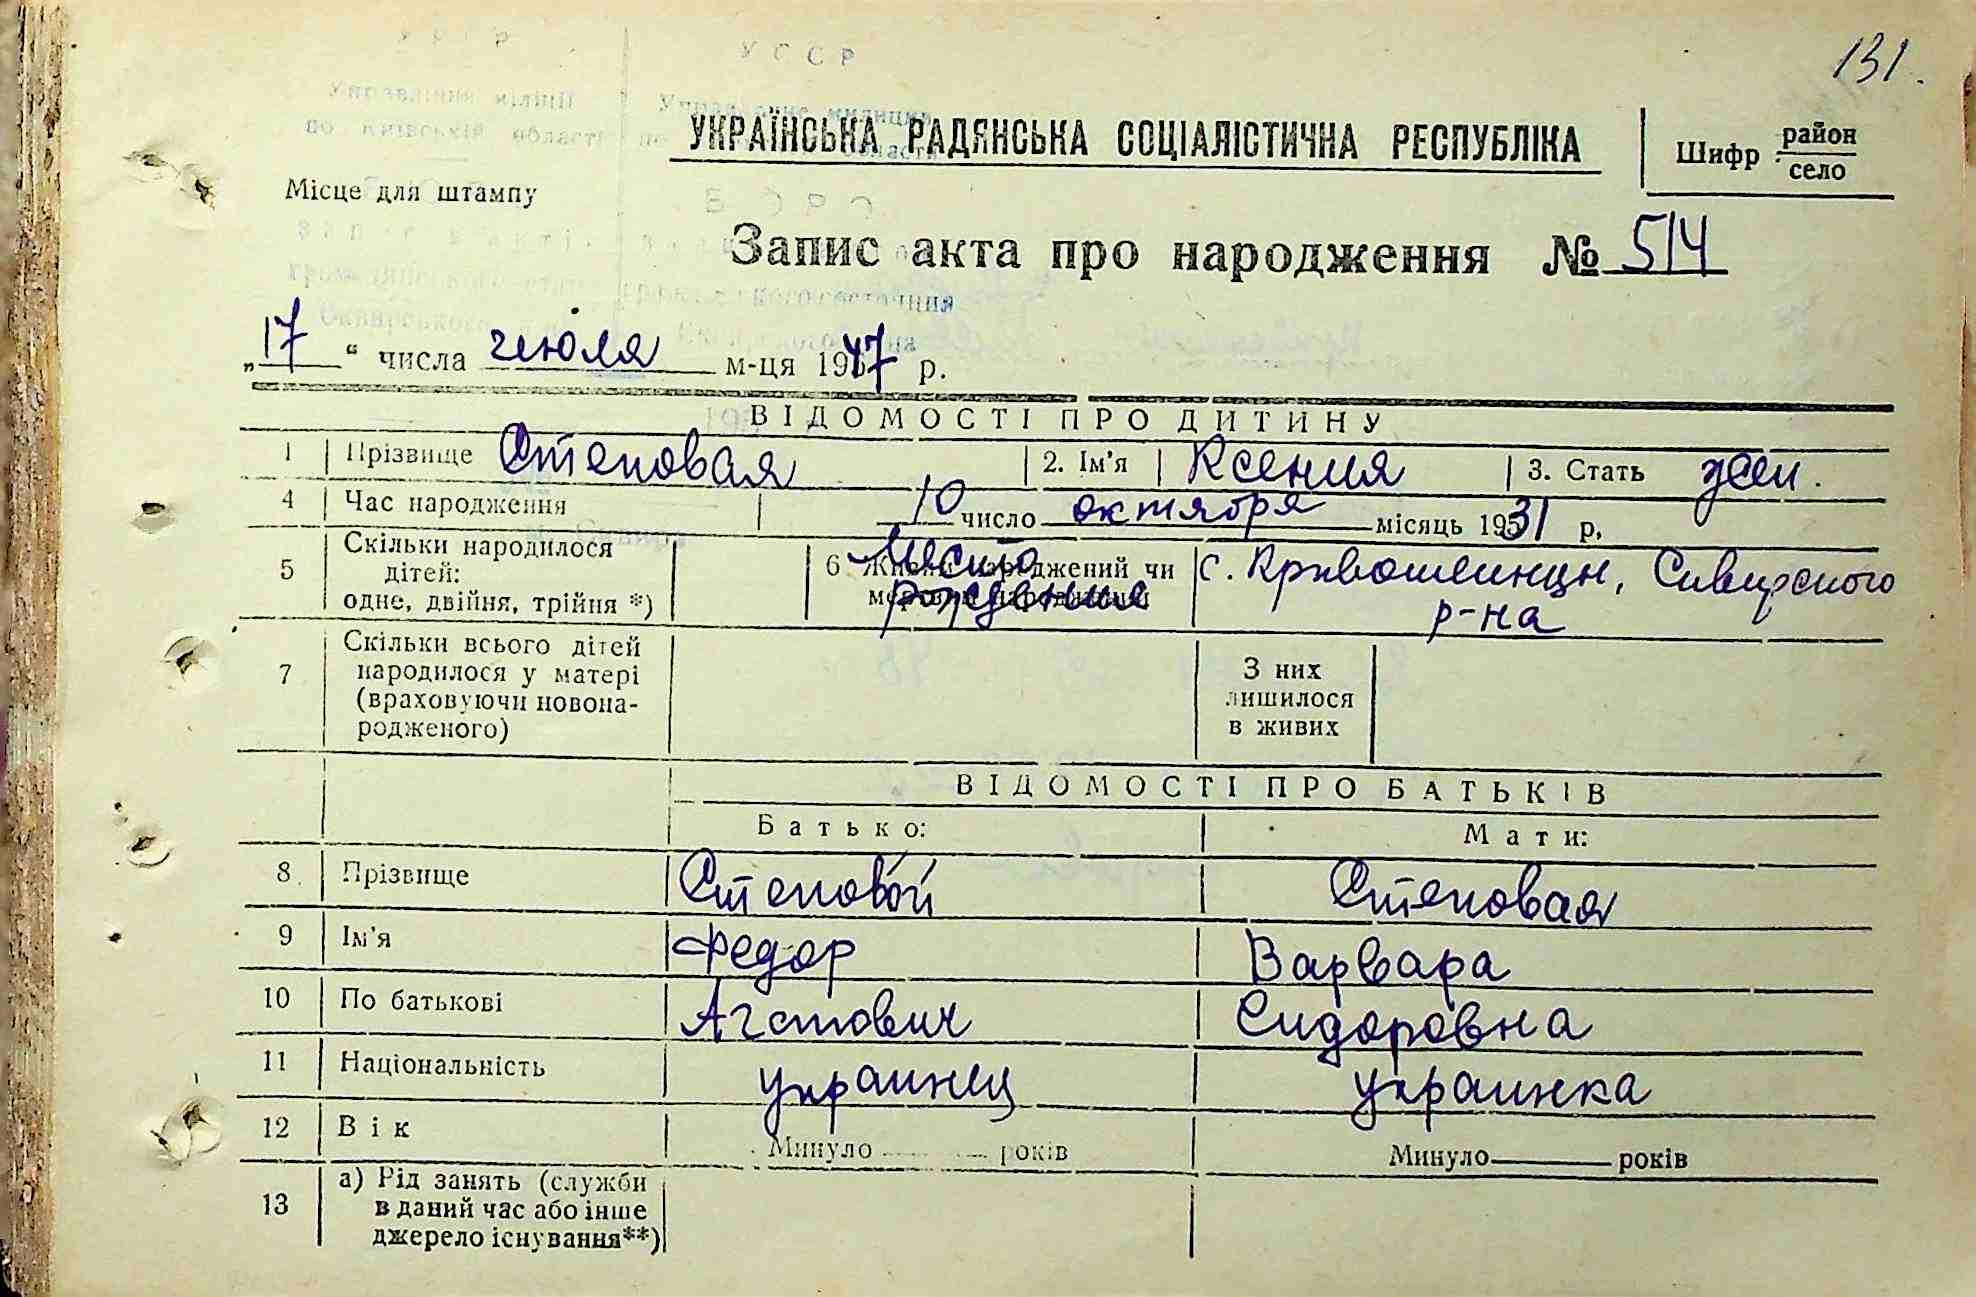 131.
УКРАЇНСЬКА РАДЯНСЬКА СОЦІАЛІСТИЧНА РЕСПУБЛІКА
Шифр район
село
Місце для штампу
Запис акта про народження № 514
„17“ числа июля м-ця 1947 р.
ВІДОМОСТІ ПРО ДИТИНУ
1 Прізвище Степовая 2. Ім'я Ксения 3. Стать жен.
4 Час народження 10 число октября місяць 1931 р.
5 Скільки народилося дітей: одне, двійня, трійня *) 6 Место рождения с. Кривошеинцы, Сквирского
р-на
7 Скільки всього дітей народилося у матері (враховуючи новонародженого) З них лишилося в живих
ВІДОМОСТІ ПРО БАТЬКІВ
Батько: Мати:
8 Прізвище Степовой Степовая
9 Ім'я Федор Варвара
10 По батькові Сидоровна
11 Національність украинец украинка
12 Вік Минуло років Минуло років
13 а) Рід занять (служби
в даний час або інше
джерело існування**)